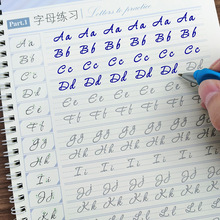 Part.1 字母练习 Letters to practice
Aa Aa Aa Aa Aa Aa Aa
Bb Bb Bb Bb Bb Bb Bb
Cc Cc Cc Cc Cc Cc Cc
Dd Dd Dd Dd Dd Dd Dd
Ee Ee Ee Ee Ee Ee Ee
Ff Ff Ff Ff Ff Ff
Gg Gg Gg Gg Gg Gg
Hh Hh Hh Hh Hh Hh
Ii Ii Ii Ii Ii Ii
Jj Jj Jj Jj Jj
Kk Kk Kk Kk Kk